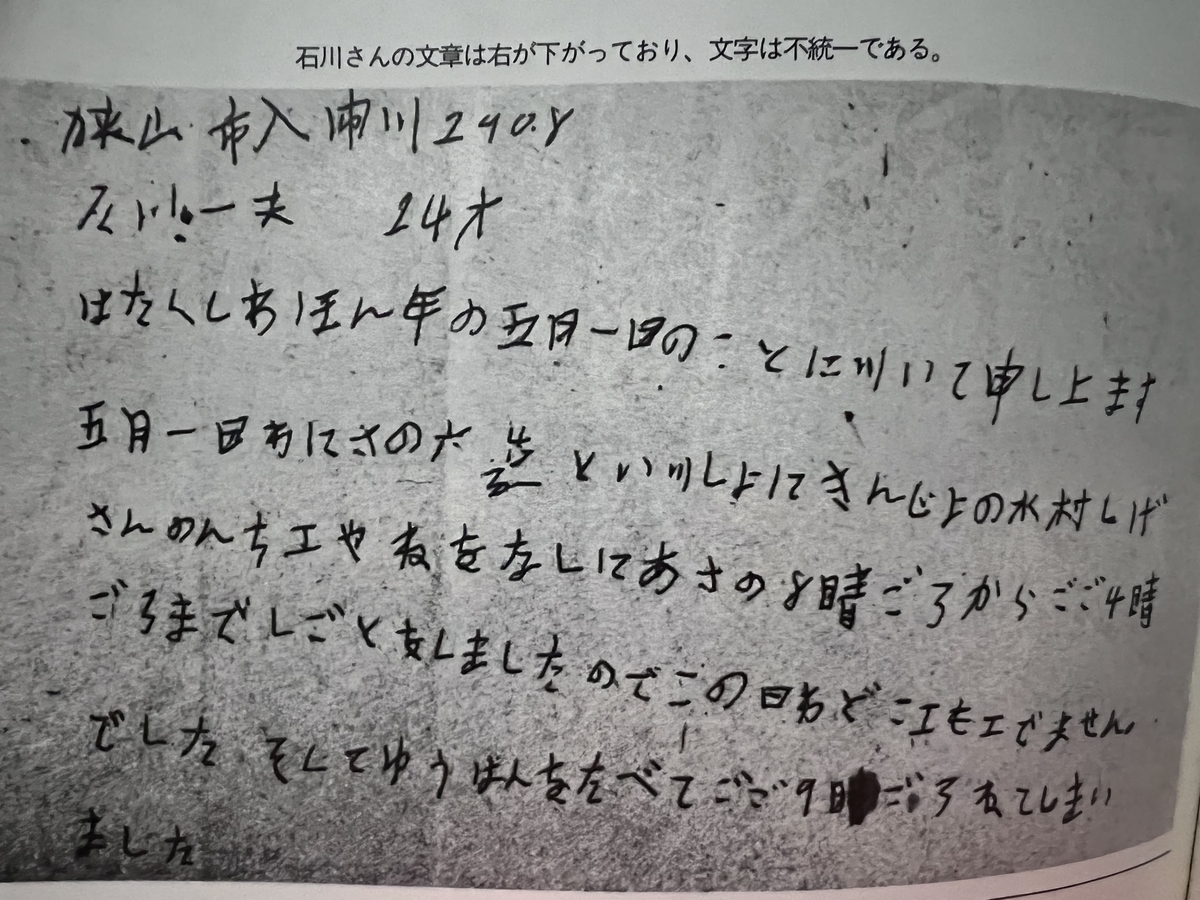 石川さんの文章は右が下がっており、文字は不統一である。
狭山市入市川2908
石川一夫 24才
はたくしわほん年の五月一日のことに川いて申し上ます
五月一日わにさの六造といッしよにきんじよの水村しげ
さんのんち工やねをなしにあさの8晴ごろからごご4晴
ごろまでしごとをしましたのでこの日わどこエもエでません
でした そしてゆうはんをたべてごご9時ごろねてしまい
ました